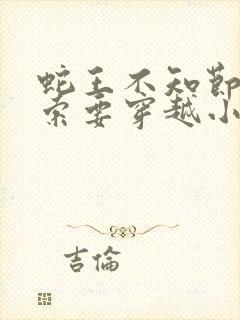 蛇王不知節
索要穿越小
吉倫